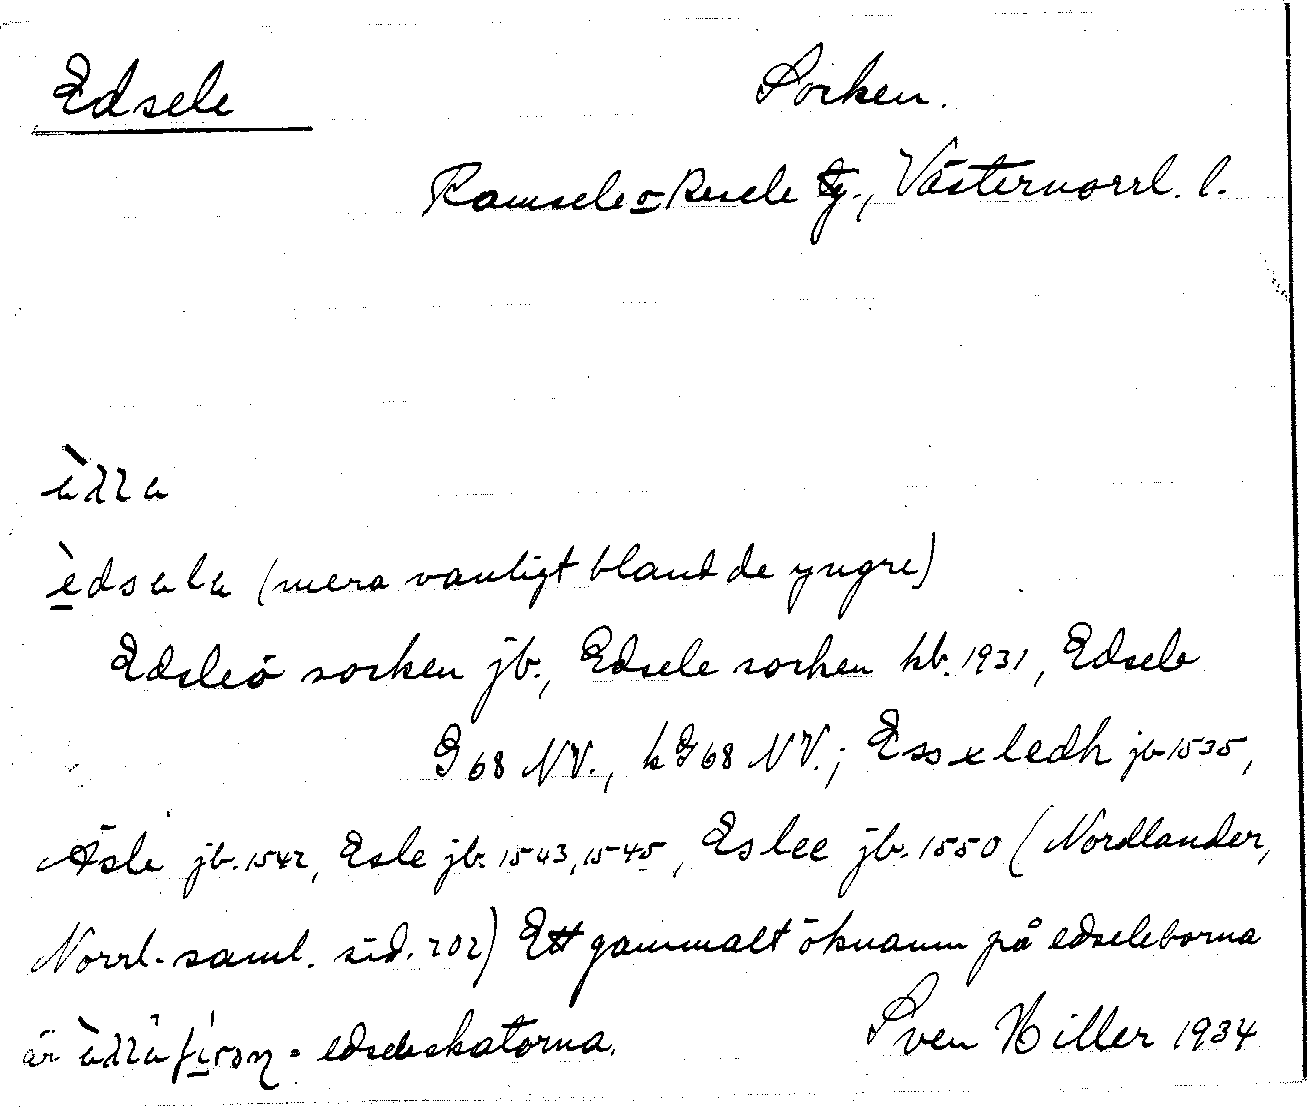 Edsele Socken.
Ramsele o Resele tg., Västernorrl. l.
(mera vanligt bland de yngre)
Edsleö socken jb., Edsele socken hb. 1931, Edsele
G 68 NV., h G 68 NV.; Essxledh jb 1535,
Äsle jb. 1542, Esle jb. 1543, 1545, Eslee jb. 1550 (Nordlander,
Norrl. saml. sid. 202) Ett gammalt öknamn på edseleborna
är - edseleskatorna.
Sven Hiller 1934